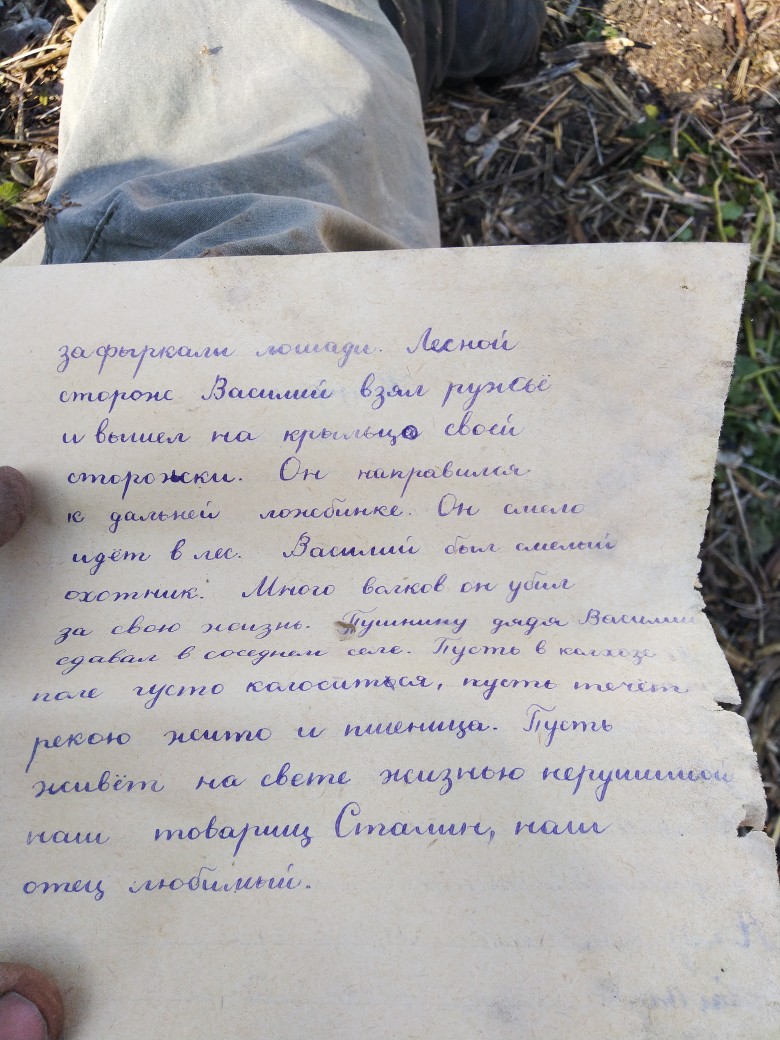 зафыркали лошади. Лесной
сторож Василий взял ружьё
и вышел на крыльцо своей
сторожки. Он направился
к дальней ложбинке. Он смело
идёт в лес. Василий был смелый
охотник. Много волков он убил
за свою жизнь. Пушнину дядя Василий
сдавал в соседнем селе. Пусть в колхозе
поле густо колосится, пусть течёт
рекою жито и пшеница. Пусть
живёт на свете жизнью нерушимой
наш товарищ Сталин, наш
отец любимый.